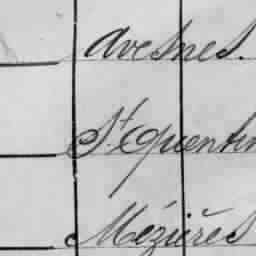 Avesnes.
St Quentin
Mézières